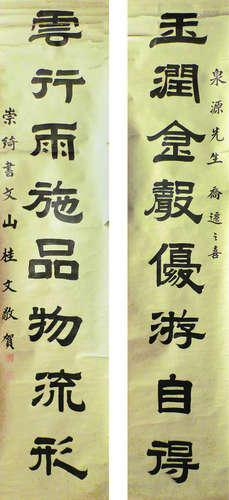 玉潤金聲優游自得
泉源先生 喬遷之喜
雲行雨施品物流形
崇綺書文山桂文敬賀